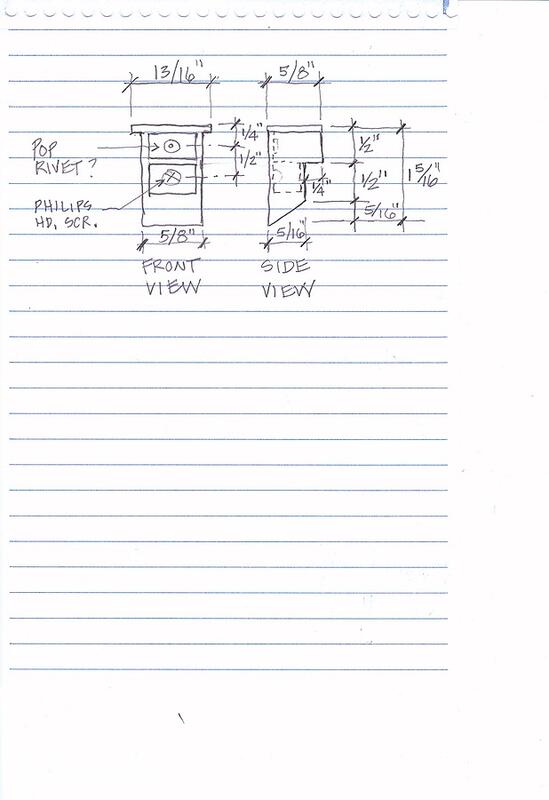 13/16"
5/8"
POP
RIVET?
1/4"
1/2"
1/2"
1/2"
1 5/16"
1/4"
PHILIPS
HD. SCR.
5/16"
5/8"
5/16"
FRONT
VIEW
SIDE
VIEW